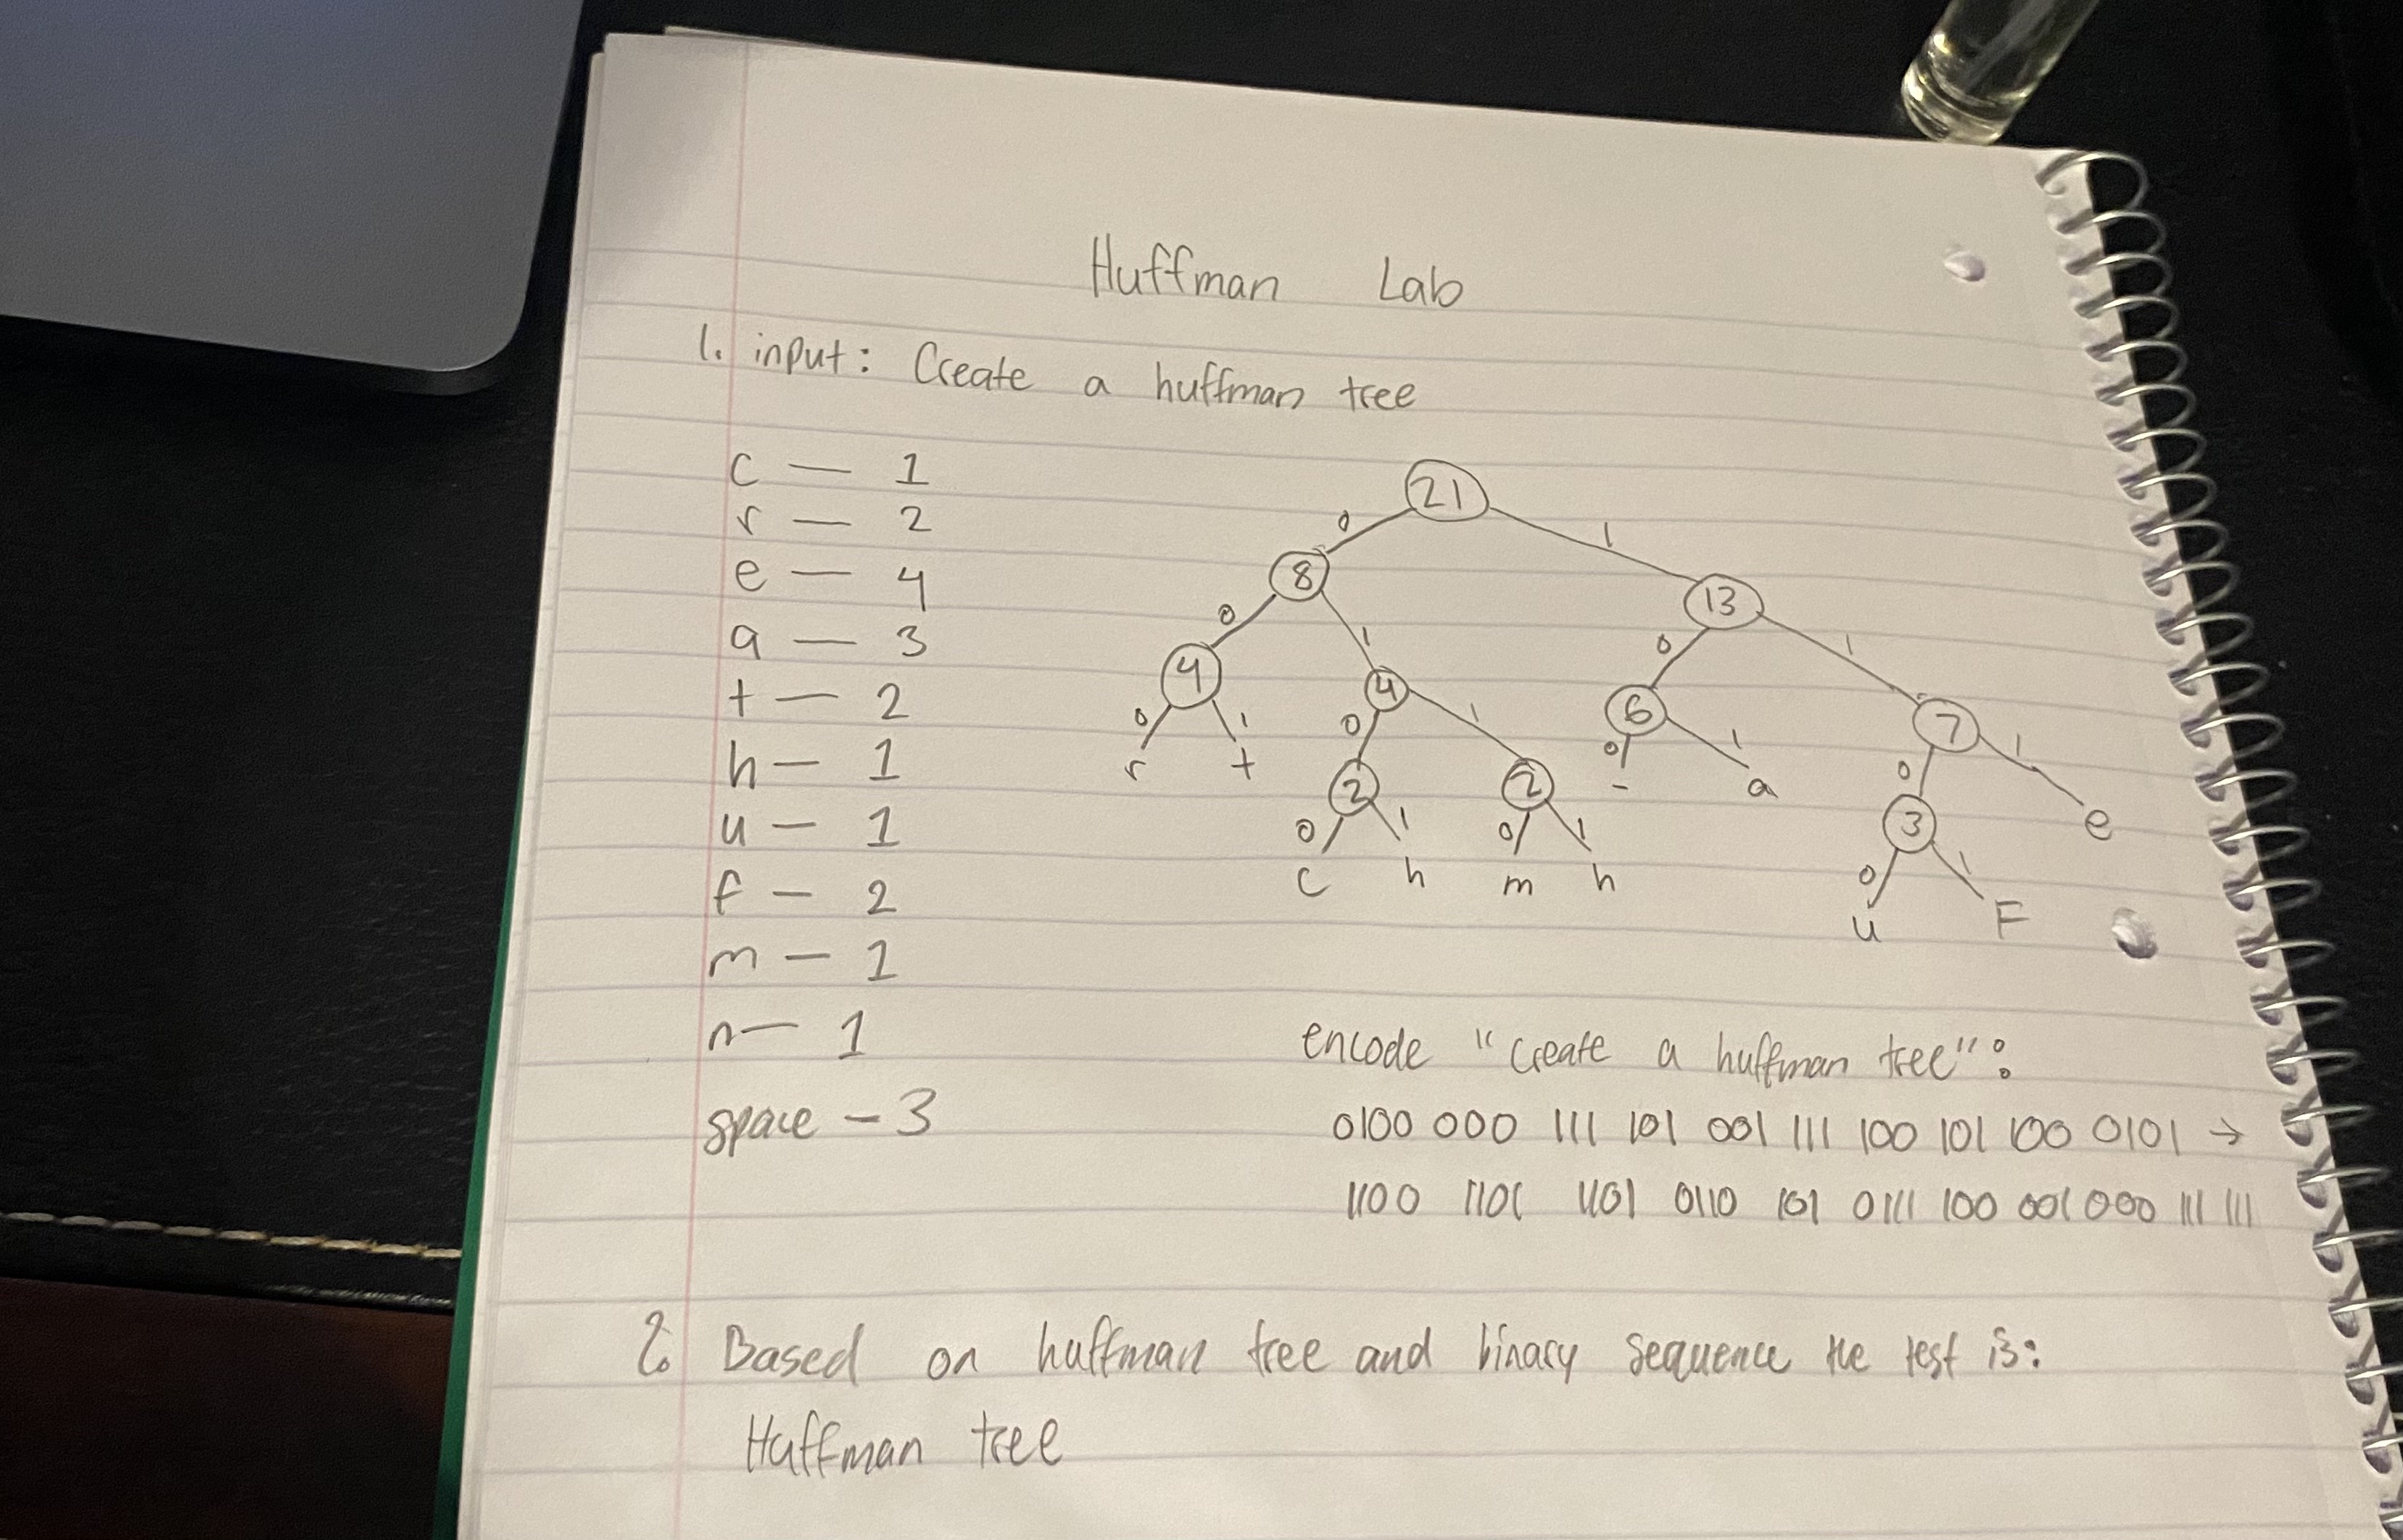 Huffman Lab
1. input: Create a huffman tree
c — 1
r — 2
e — 4
a — 3
t — 2
h — 1
u — 1
f — 2
m — 1
n — 1
space — 3
21
0 1
8 13
0 1 0 1
4 4 6 7
0 1 0 1 0 1 0 1
r t 2 2 - a 3 e
0 1 0 1 0 1
c h m h u F
encode "Create a huffman tree":
0100 000 111 101 001 111 100 101 100 0101 →
1100 1101 1101 0110 101 0111 100 001 000 111 111
2. Based on huffman tree and binary sequence the test is:
Huffman tree